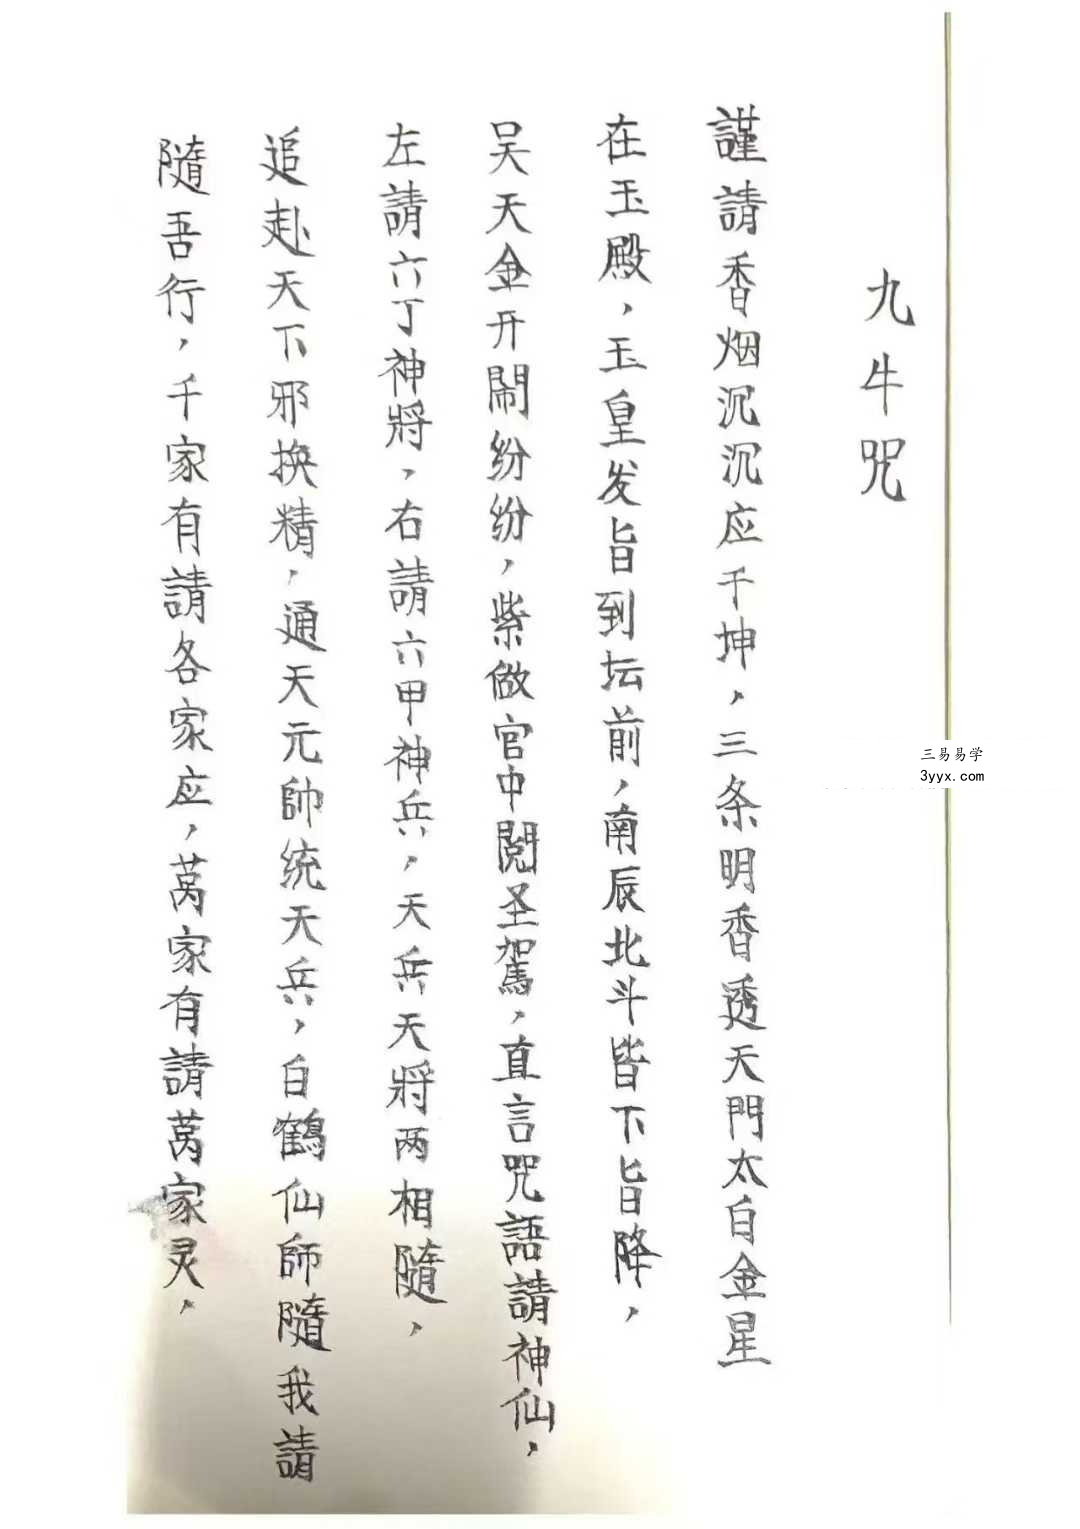 九牛咒
謹請香烟沉沉应干坤，三条明香透天門太白金星
在玉殿，玉皇发旨到坛前，南辰北斗皆下旨降，
吴天金开鬧纷纷，紫做官中閲圣駕，直言咒語請神仙，
左請六丁神將，右請六甲神兵，天兵天將两相隨，
追赴天下邪换精，通天元帥统天兵，白鶴仙師隨我請
隨吾行，千家有請各家应，萬家有請萬家灵，
三易易学
3yyx.com